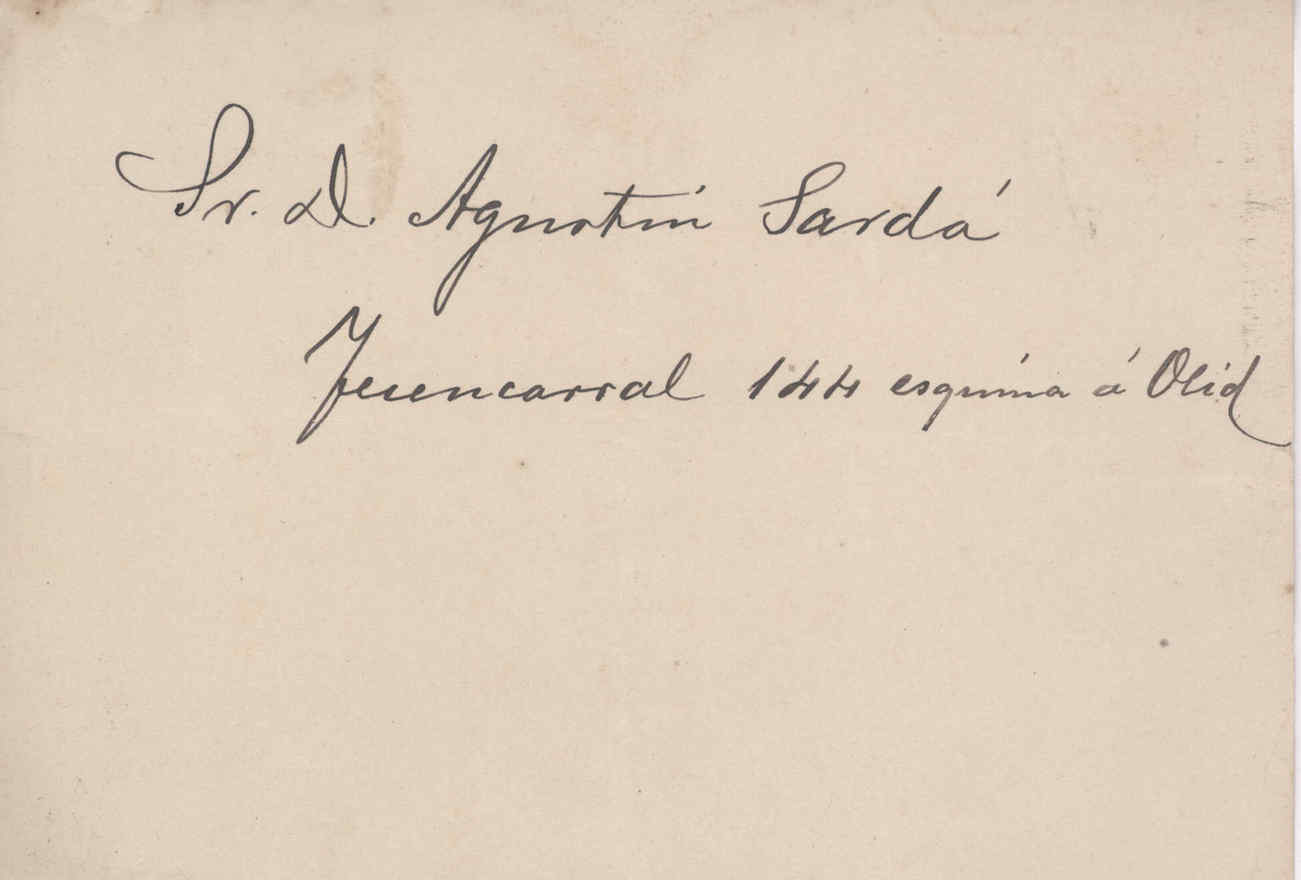 Sr. D. Agustin Sardá
Fuencarral 144 esquina á Olid